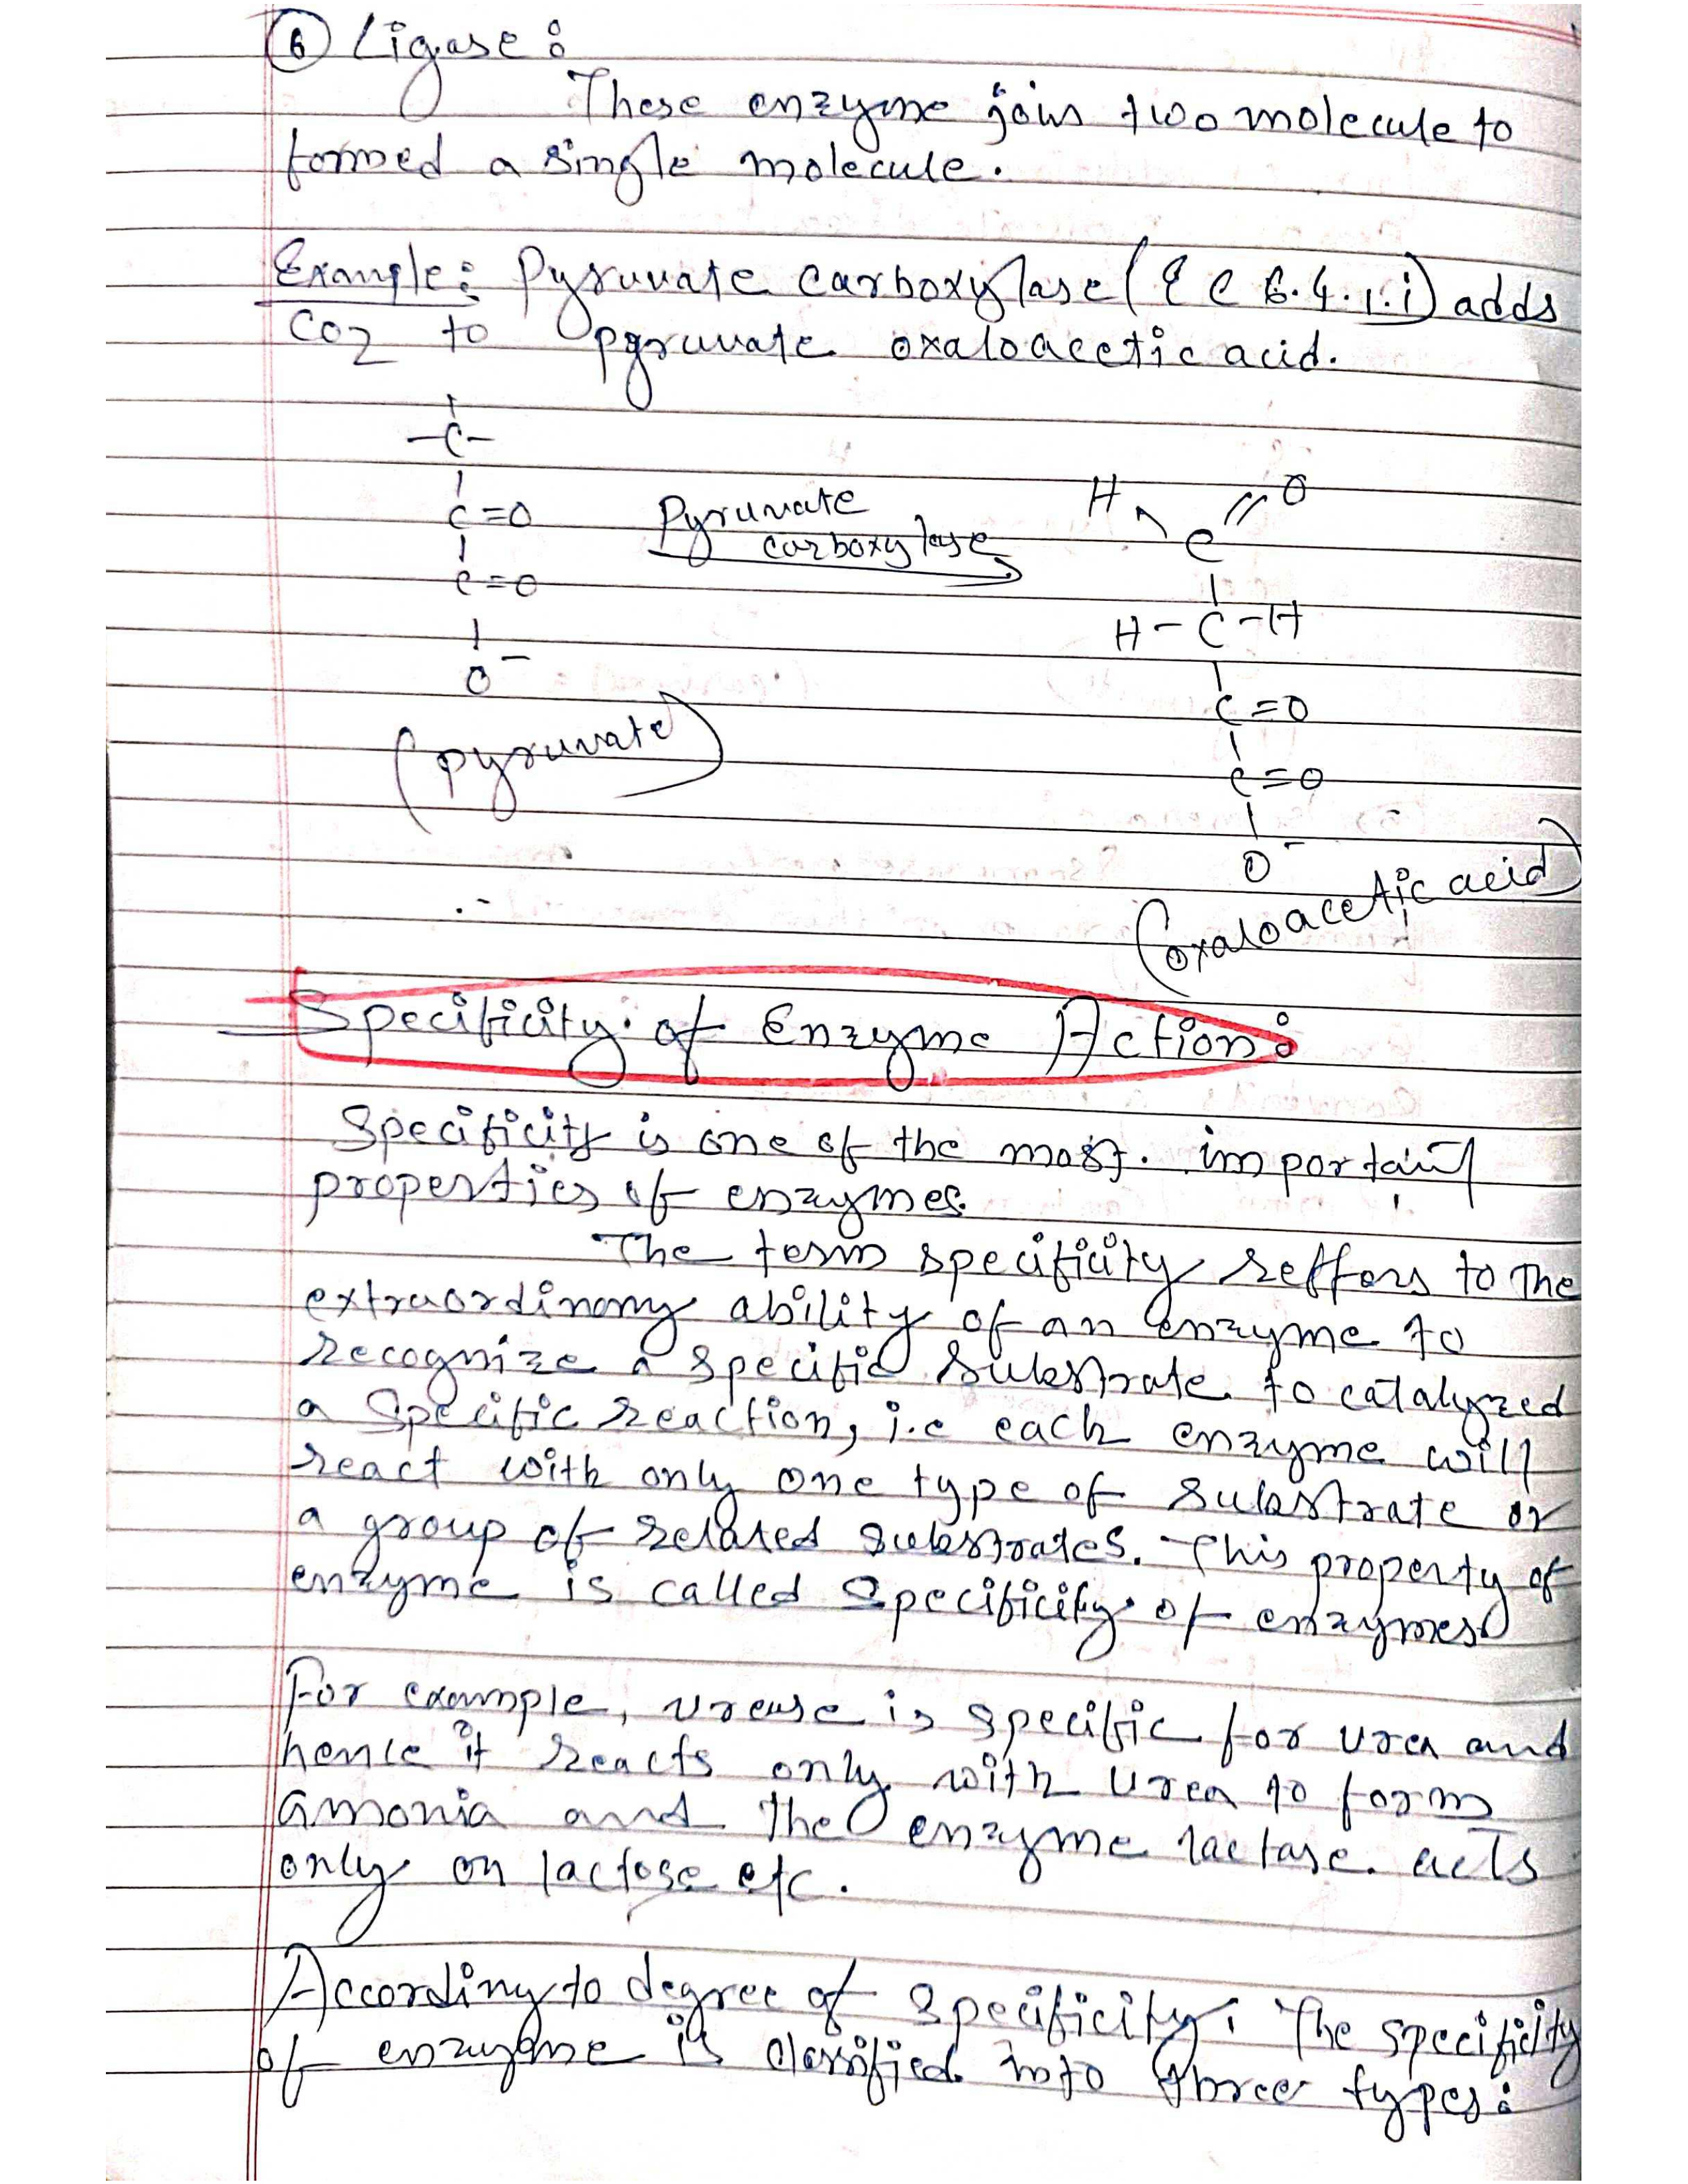 6 Ligase:
These enzyme join two molecule to
formed a single molecule.
Example: Pyruvate carboxylase (EC 6.4.1.1) adds
CO2 to pyruvate oxaloacetic acid.
-C-
C=O
C=O
O-
(pyruvate)
Pyruvate
carboxylase
H O
C
H-C-H
C=O
C=O
O-
(oxaloacetic acid)
Specificity of Enzyme Action:
Specificity is one of the most important
properties of enzymes.
The term specificity reffers to the
extraordinary ability of an enzyme to
recognize a specific substrate to catalyzed
a specific reaction, i.e each enzyme will
react with only one type of substrate or
a group of related substrates. This property of
enzyme is called specificity of enzymes
For example, urease is specific for urea and
hence it reacts only with urea to form
amonia and the enzyme lactase acts
only on lactose etc.
According to degree of specificity, The specificity
of enzyme is classified into three types: